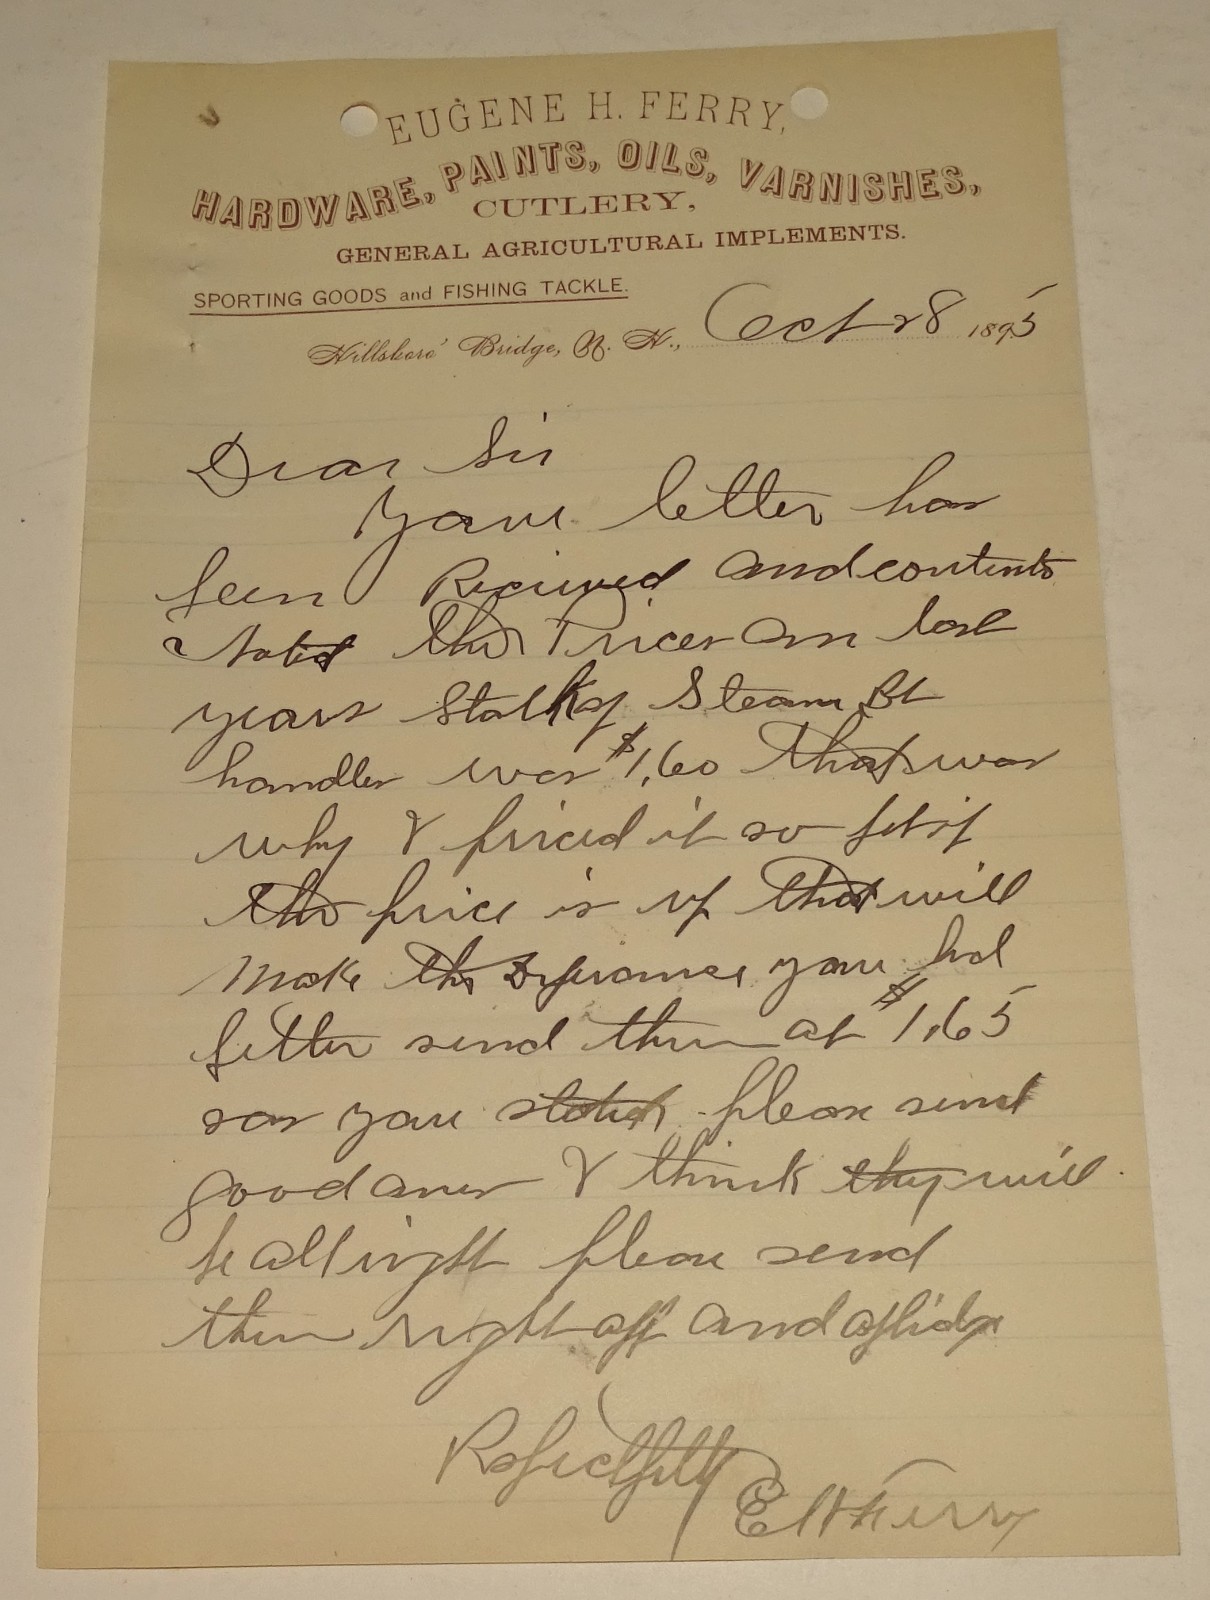 EUGENE H. FERRY,
HARDWARE, PAINTS, OILS, VARNISHES,
CUTLERY,
GENERAL AGRICULTURAL IMPLEMENTS.
SPORTING GOODS and FISHING TACKLE.
Hillsboro' Bridge, N. H., Oct 28 1895
Dear Sir
Your letter has
been Recieved and contents
Noted the Prices on last
years Steam Bt
handles was $1,60 that was
why I priced it so but if
the price is up that will
Make the you had
better send them at $1,65
as you please send
good ones I think they will
be all right please send
them right off and oblidge
Respectfully
E H Ferry